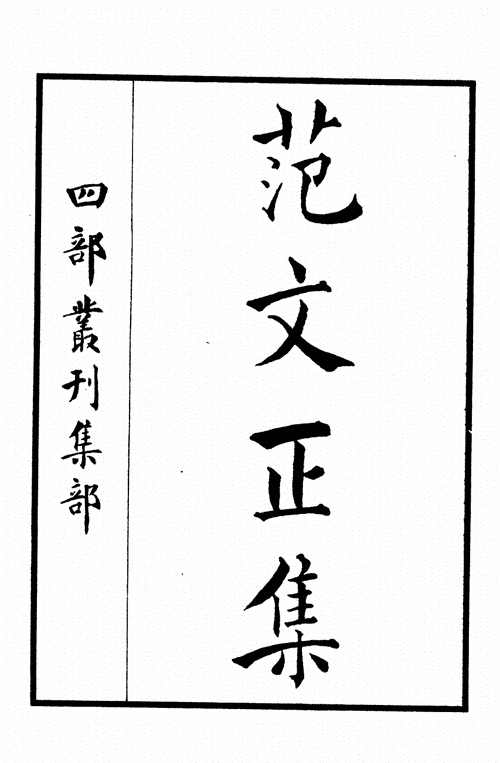 范文正集
四部叢刊集部